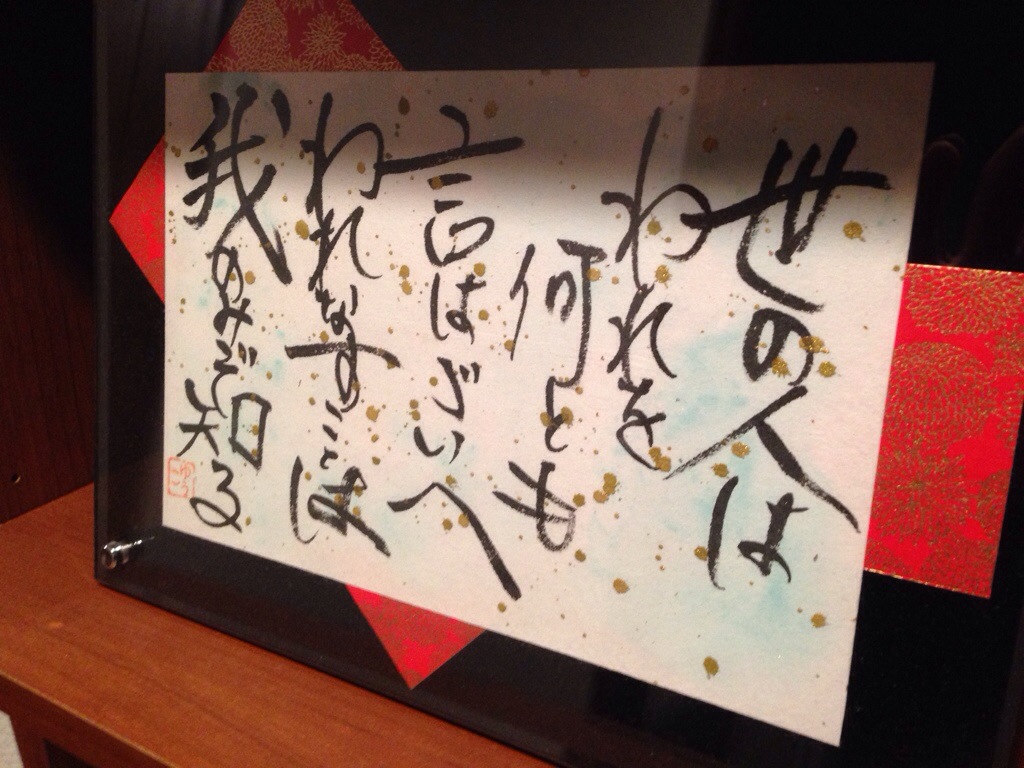 世の人は
われを
何とも
言はゞいへ
われなすことは
我のみぞ知る
ゆうこ